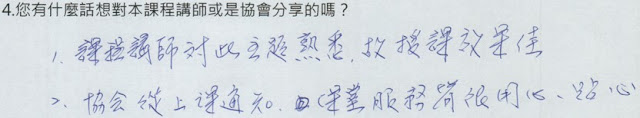 4.您有什麼話想對本課程講師或是協會分享的嗎？
1. 課程講師對此主題熟悉，教授課效果佳
2. 協会從上课通知、課堂服務皆很用心、貼心